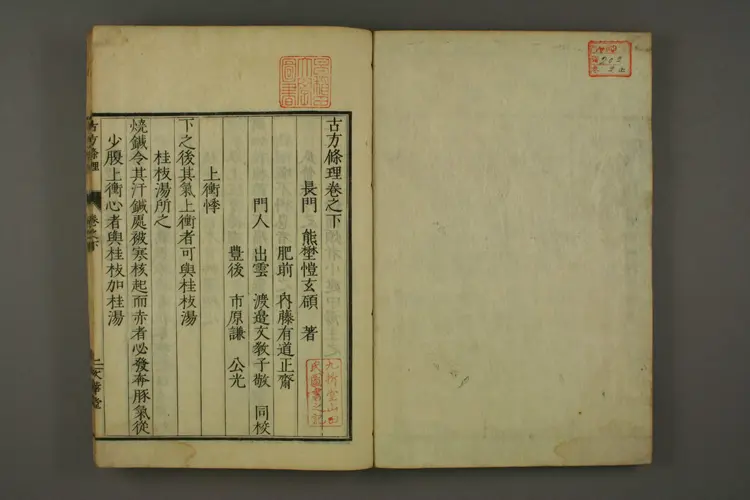 古方條理卷之下
長門 熊埜愷玄碩 著
肥前 內藤有道正齋
門人 出雲 渡邉文敎子敬 同校
豊後 市原謙 公光
上衝悸
下之後其氣上衝者可與桂枝湯
桂枝湯所之
燒鍼令其汗鍼處被寒核起而赤者必發奔豚氣從
少腹上衝心者與桂枝加桂湯
古方條理
卷之下